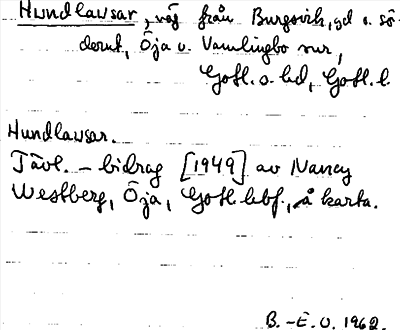 Hundlausar, väg från Burgsvik, gd i. sö-
derut, Öja o. Vamlingbo snr,
Gotl. s. hd, Gotl. l.
Hundlausar.
Tävl. - bidrag [1949] av Nancy
Westberg, Öja, Gotl. hbf., å karta.
B. -E. O. 1962.